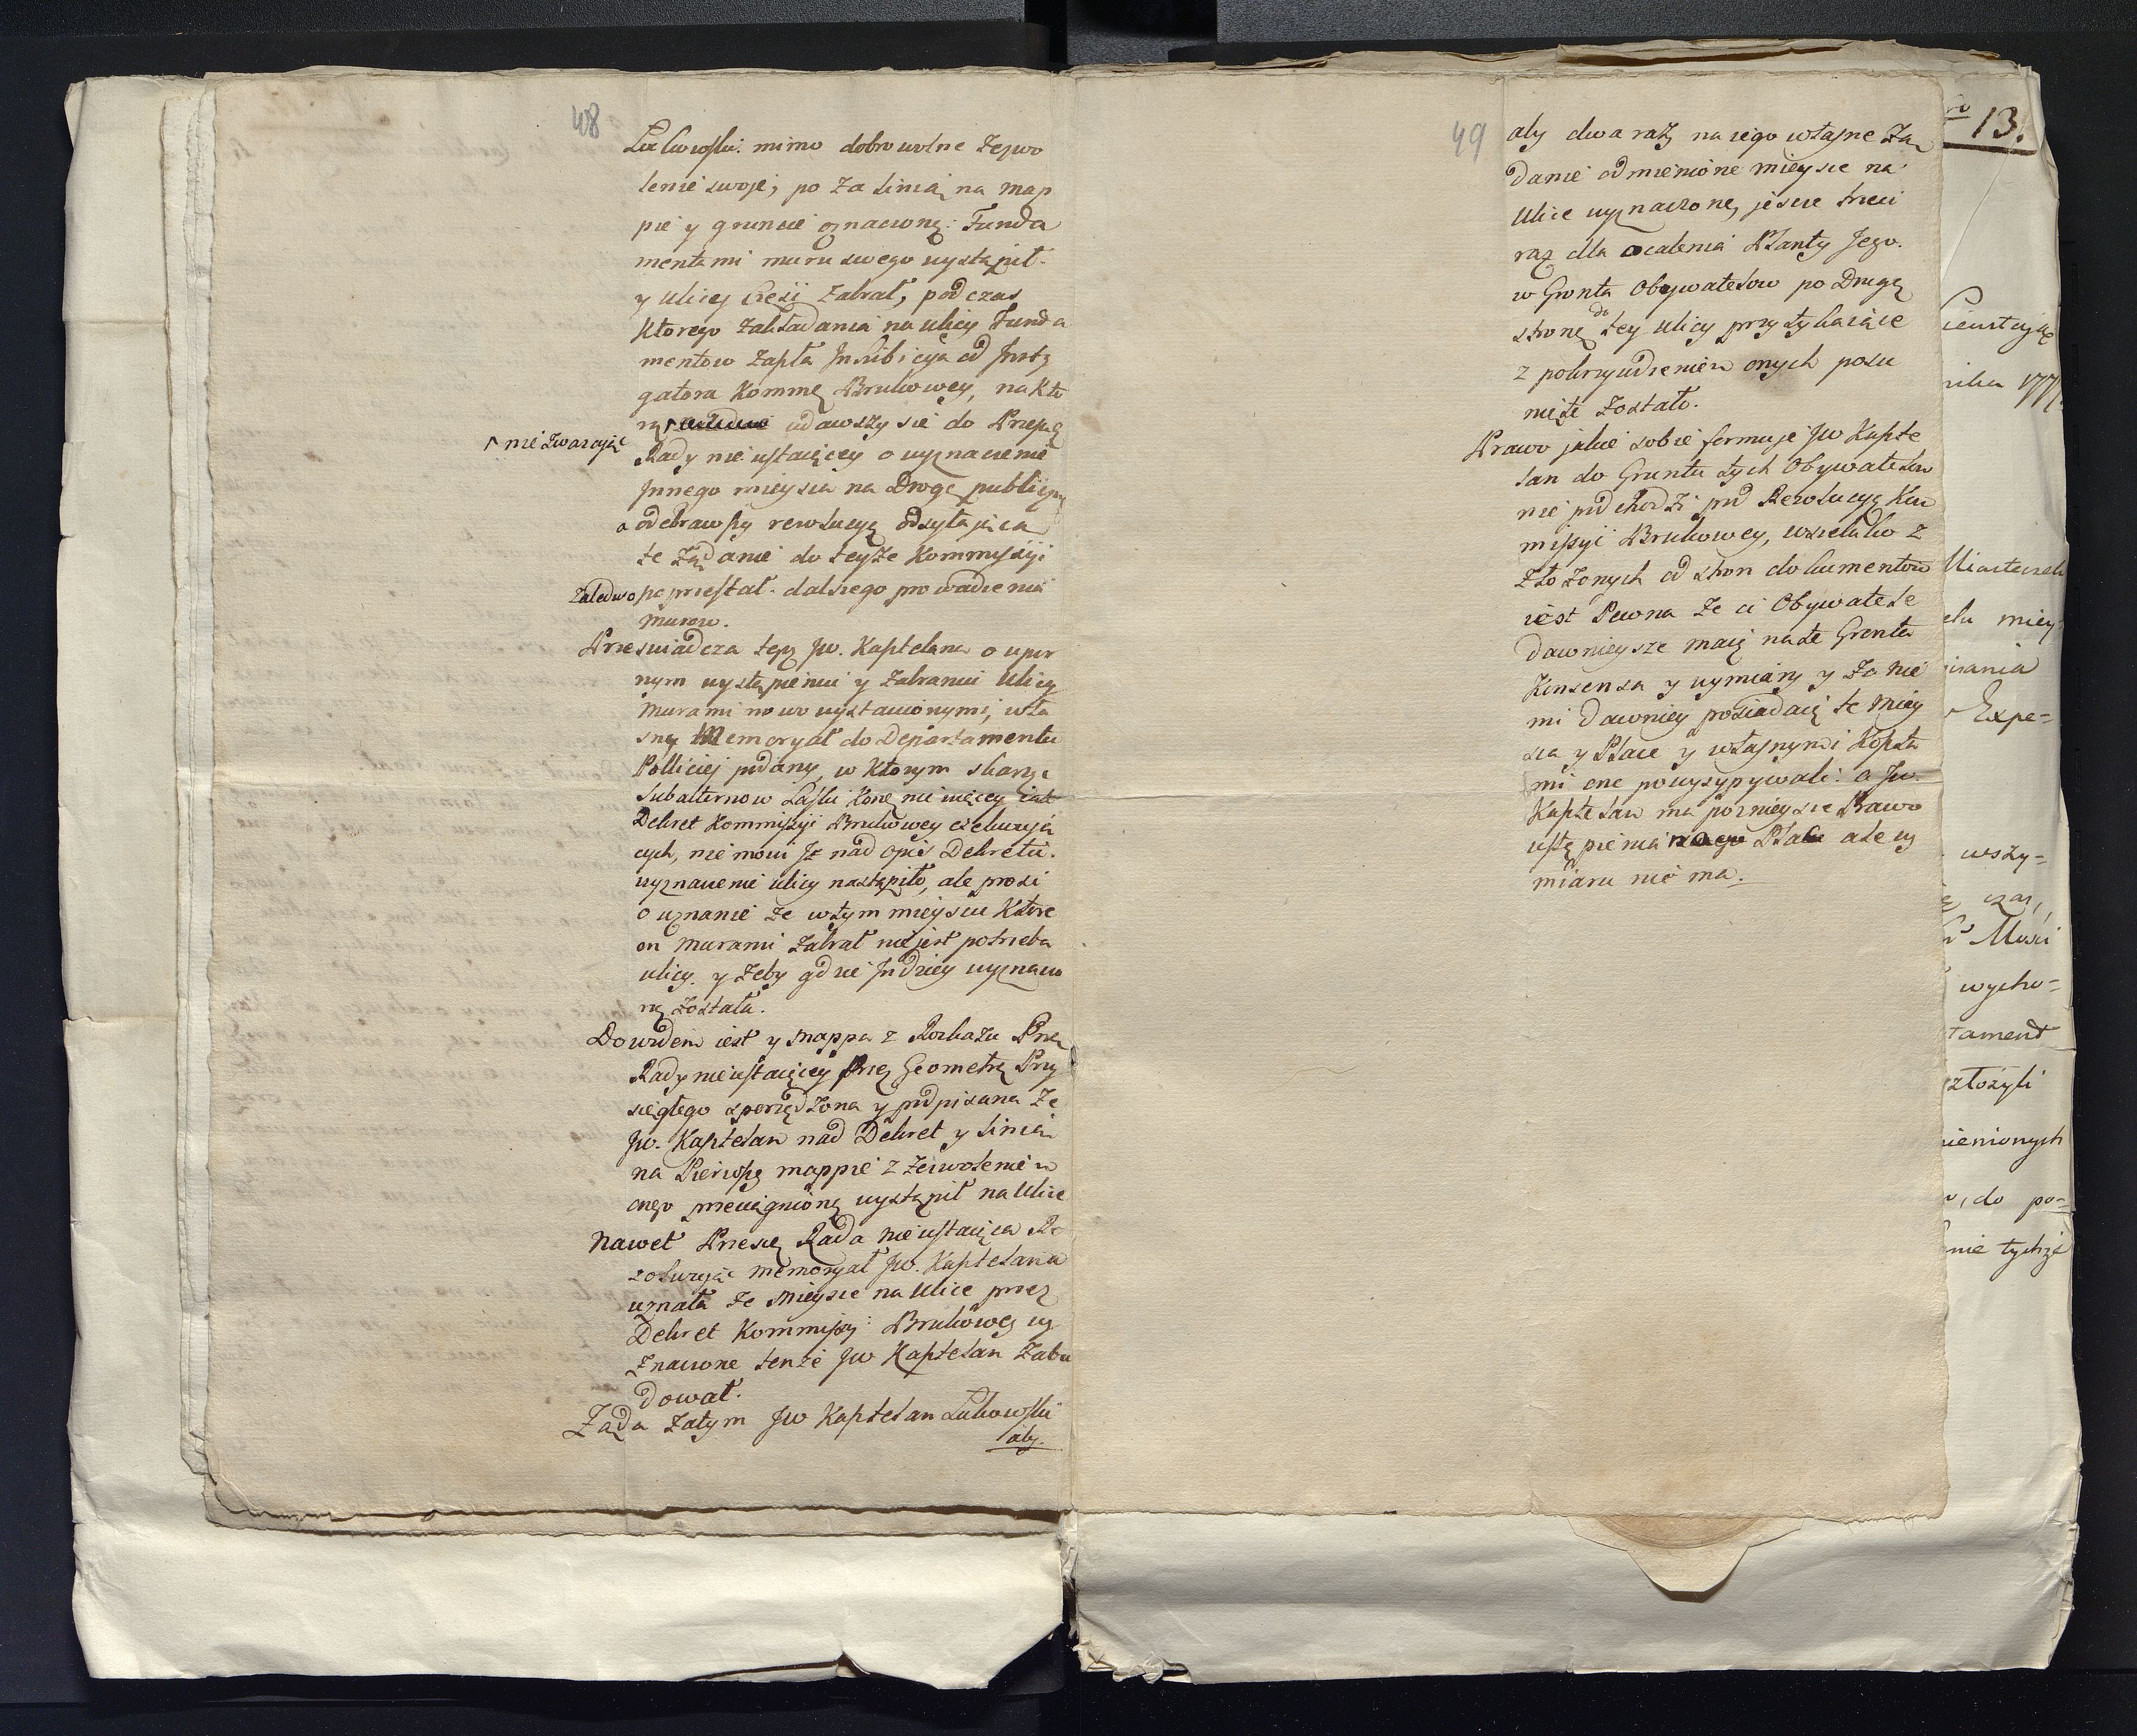 48
Lukowski: mimo dobrowolne Zezwo
lenie swoje, po za linią na map
pie y gruncie oznaczoną: Funda
mentami muru swego wystąpił.
y ulicy Części Zabrał, podczas
Ktorego Zakładania na ulicy Funda
mentow Zaszła Inhibicya od Insty
gatora Kommę Brukowey, na Kto
rą udawszy sie do Prześę
^ nie zwazając
Rady nieustaiącey o wyznaczenie
Innego mieysca na Drogę publiczną
a odebrawszy rezolucyą odsyłająca
te Żądanie do teyże Kommissyi
Zaledwo poprzestał. dalszego prowadzenia
murow.
Przeswiadcza tęż Jw. Kasztelana o upor
nym wystąpieniu y Zabraniu Ulicy
Murami nowo wystawionymi, wła
sny Memoryał do Departamentu
Polliciej podany, w Ktorym skarżąc
Subalternow Laski Konę nie więcey iak
Dekret Kommissyi Brukowey exekwują
cych, nie mowi Iż nad opis Dekretu.
wyznaczenie ulicy nastąpiło, ale prosi
o uznanie że w tym mieyscu Ktore
on murami Zabrał nie jest potrzeba
ulicy. y żeby gdzie Indziey wyznaczo
ną została.
Dowodem iest y Mappa z Rozkazu Prze
Rady nieustaiącey Przez Geometrę Przy
sięgłego sporządzona y podpisana Że
Jw. Kasztelan nad Dekret y linią
na Pierwszey mappie z Zezwoleniem
onego przeciągnioną wystąpił na Ulice
Nawet Prześę Rada nieustaiąca Re
zolwując memoryał Jw. Kasztelana
uznała że Mieysce na Ulice przez
Dekret Kommissyi Brukowey wy
znaczone tenże Jw Kasztelan Zabu
dował.
Żąda Zatym Jw Kasztelan Lukowski
aby.
49
aby dwa razy na iego własne Żą
danie odmienione mieysce na
Ulice wyznaczone, jeszcze trzeci
raz dla ocalenia Planty Jego.
w Gronta Obywatelow po Drugą
stronę do tey ulicy przytykaiące
z pokrzywdzeniem onych posu
nięte Zostało.
Prawo jakie sobie formuje Jw Kaszte
lan do Gruntu tych Obywatelow
nie podchodzi pod Rezolucyą Kom
missyi Brukowey, wszelako z
Złożonych od stron dokumentow
iest Pewna Że ci Obywatele
dawnieysze maią na te Gronta
Konsensa y wymiary y Za nie
mi dawniey posiadaią te miey
sca y Place y własnymi Koszta
mi one powysypywali: a Jw.
Kasztelan ma poznieysze Prawo
ustąpienia Placu ale wy
miaru nie ma.
13.
1771
Expe=
wszy=
czas,
wycho=
złożyli
do po=
nie tychże